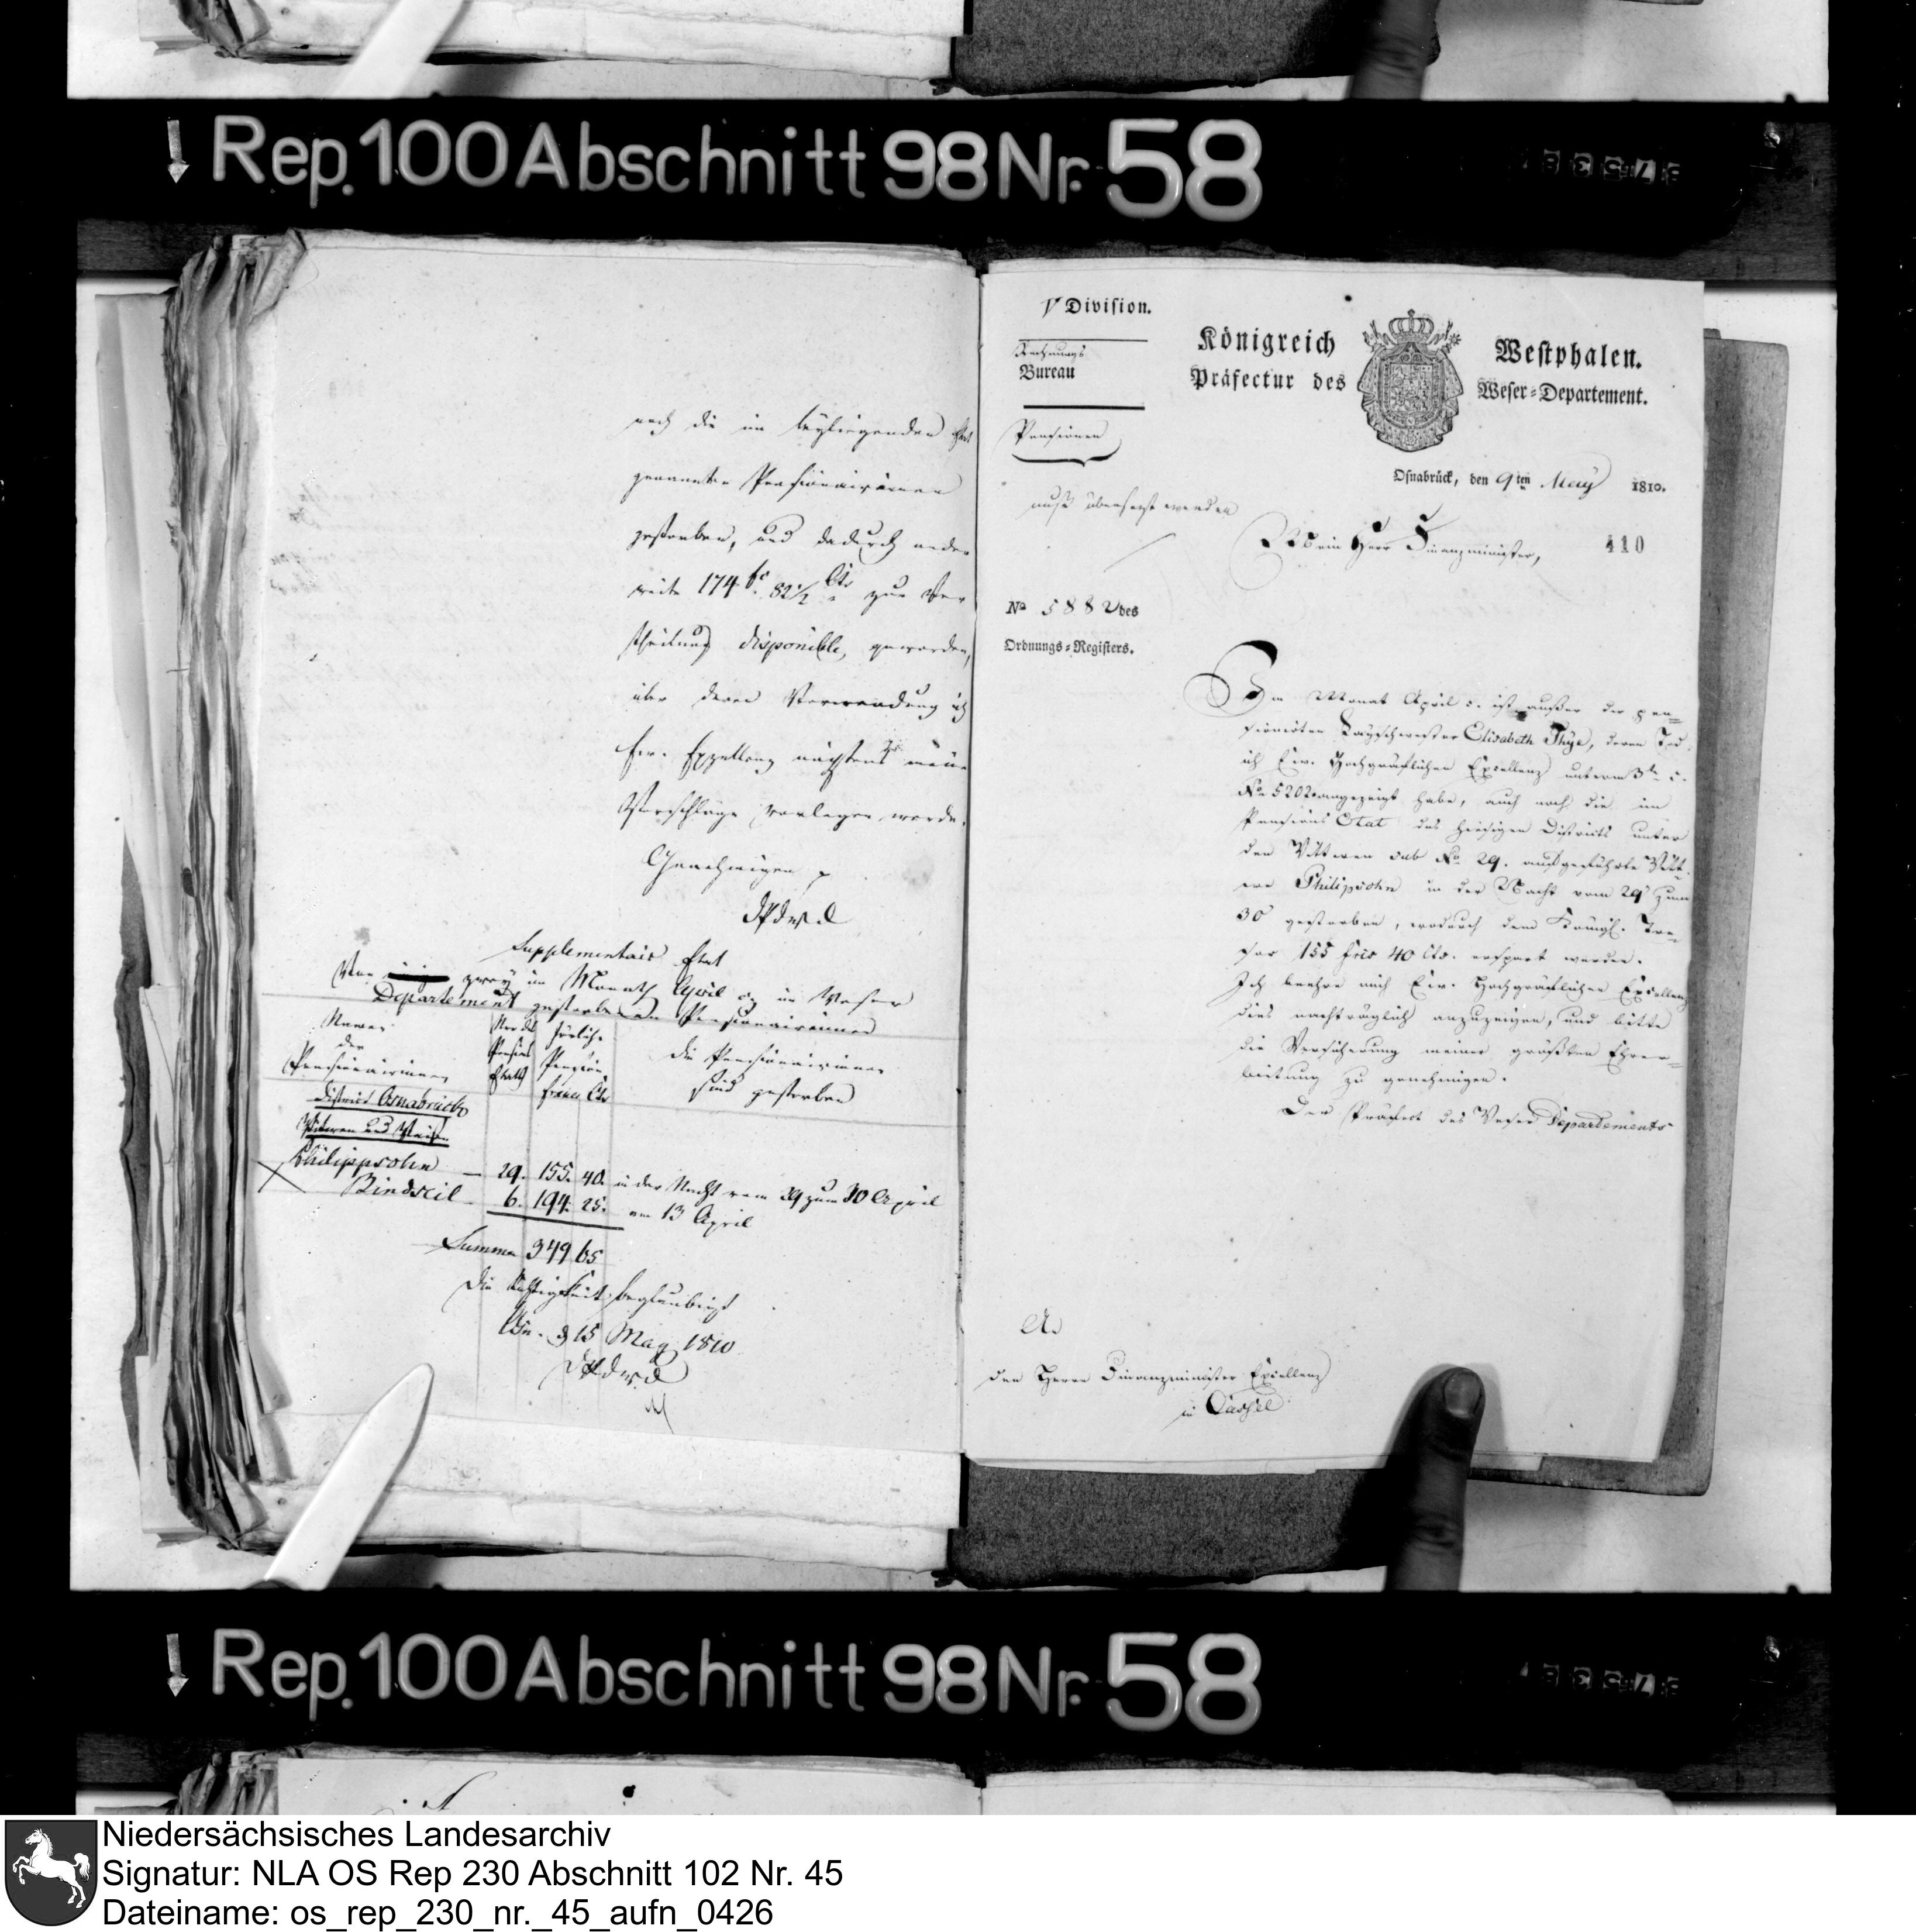 Rep. 100 Abschnitt 98 Nr. 58
noch die im beyliegenden Etat
genannten Pensionairinnen
gestorben, und dadurch ander
weite 174 fs. 82½ Cts. zur Ver
theilung disponible geworden,
über deren Verwendung ich
Ew. Excellenz nächstens meine
Vorschläge vorlegen werde.
Genehmigen p
DPdWD
Supplementair Etat
Von zwey im Monath April im Weser
Departement gestorbenen Pensionairinnen
Namen der Pensionairinnen
Nro des Pensions Etats
Jährliche Pension
Francs Cts
die Pensionairinnen sind gestorben
District Osnabrück
Witwen und Waisen
Philippsohn — 29. 155. 40. in der Nacht vom 29 zum 30 April
Bindseil 6. 194. 25. am 13 April
Summa 349 65
Die Richtigkeit beglaubigt
Osn. d 15 May 1810
DPdWD
V Division.
Rechnungs
Bureau
Pensionen
muß übersetzt werden
Königreich Westphalen.
Präfectur des Weser-Departement.
Osnabrück, den 9ten May 1810.
410
Mein Herr Finanzminister,
No 5882 des
Ordnungs-Registers.
Im Monat April c. ist außer der pen-
sionirten Layschwester Elisabeth Thye, deren Tod
ich Ew. Hochgräflichen Excellenz unterm 3ten c.
No 5202 angezeigt habe, auch noch die im
Pensions Etat des hiesigen Districts unter
den Wittwen sub No. 29. aufgeführte Witt-
we Philipsohn in der Nacht vom 29 zum
30 gestorben, wodurch dem Königl. Tre-
sor 155 frcs 40 Cts. erspart werden.
Ich beehre mich Ew. Hochgräflichen Excellenz
dies nachträglich anzuzeigen, und bitte
die Versicherung meiner größten Ehrer-
bietung zu genehmigen.
Der Präfect des Weser Departements
An
den Herrn Finanzminister Excellenz
in Cassel
Rep. 100 Abschnitt 98 Nr. 58
Niedersächsisches Landesarchiv
Signatur: NLA OS Rep 230 Abschnitt 102 Nr. 45
Dateiname: os_rep_230_nr._45_aufn_0426